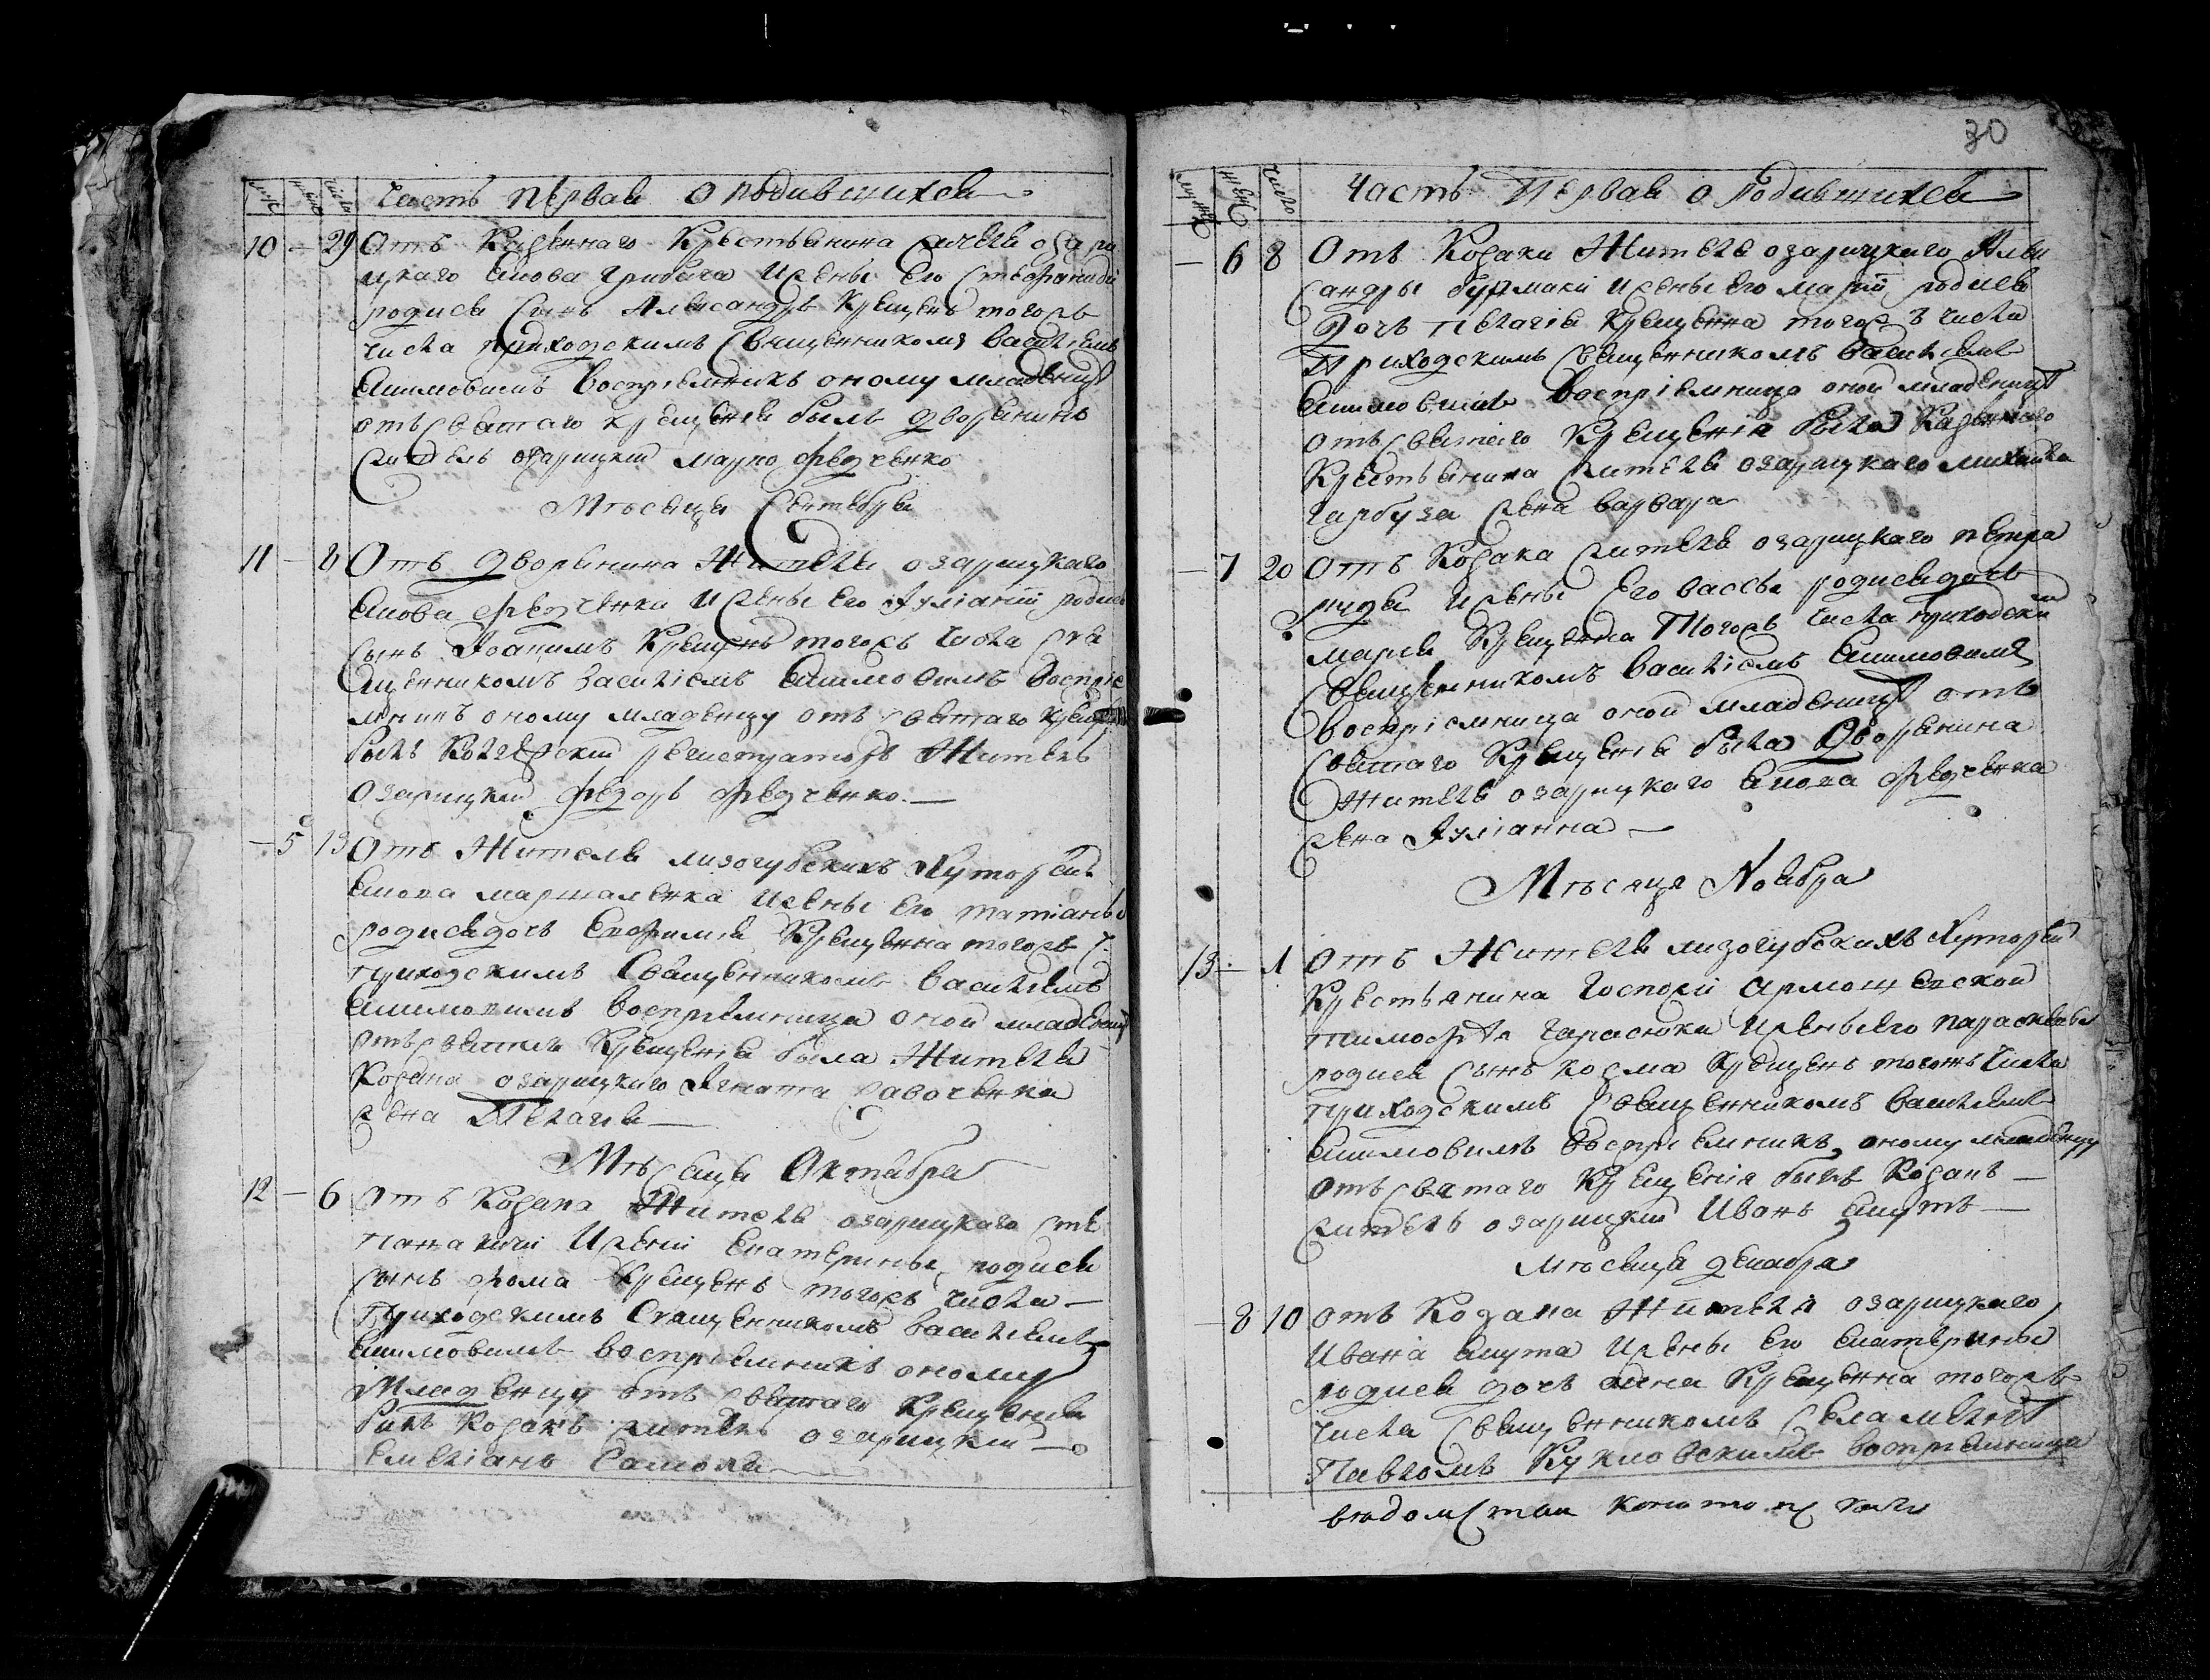 муж женс число Часть Первая о родившихся
10 – 29 Отъ Казеннаго Крестьянина жителя озари
цкаго Якова Грибача и жены Его Стефаниды
родися сынъ Александръ Крещенъ тогожъ
числа приходскимъ священникомъ Василиемъ
Якимовимъ воспріемникъ оному младенцу
отъ святаго крещения былъ дворянинъ
житель озарицкий Марко Федченко
Мѣсяца Сентября
11 – 8 Отъ Дворянина Жителя озарицкаго
Якова Федченка и жены Его Іулianіи родися
сынъ Іоакимъ Крещенъ тогожъ числа свя
щенникомъ Василіемъ Якимовимъ воспріе
мникъ оному младенцу отъ святаго крещения
былъ Колежский регистраторъ Житель
Озарицкий Федоръ Федченко. —
– 5 13 Отъ Жителя лизогубскихъ Хуторей
Якова Маршаленка и жены Его Татианы
родися дочь Евфимия Крещенна тогожъ ч.
приходскимъ Священникомъ Василиемъ
Якимовимъ воспріемница оной младенице
отъ святаго Крещения была Жителя
Козака озарицкаго Игната Савченка
жена Пелагия —
Мѣсяца Октября
12 – 6 Отъ Козака Жителя озарицкаго Сте
пана и жены Екатерины родися
сынъ Фома Крещенъ тогожъ числа –
Приходскимъ Священникомъ Василиемъ
Якимовимъ воспріемникъ оному
Младенцу отъ святаго Крещения
былъ Козакъ житель озарицкий —
Емелианъ
30
муж женс число Часть Первая о родившихся
– 6 8 Отъ Козака Жителя озарицкаго Алек
сандры Бурмаки и жены Его Маріи родися
Дочь Пелагія Крещенна тогожъ числа
Приходскимъ священникомъ Василіемъ
Якимовимъ воспріемница оной младеницѣ
отъ святаго Крещенія была Казеннаго
Крестьянина жителя озарицкаго Михайла
Гарбуза жена Варвара
– 7 20 Отъ Козака жителя озарицкаго Петра
и жены Его Вассы родися дочь
Мария Крещенна Тогожъ числа приходским
священникомъ Василіемъ Якимовимъ
воспріемница оной младеницѣ отъ
святаго Крещенія была Дворянина
Жителя озарицкаго Якова Федченка
жена Іуліанна —
Мѣсяца Ноября
13 – 1 Отъ Жителя лизогубскихъ Хуторей
Крестьянина Госпожи
Тимофѣя Гарасюка и жены Его Парасковьи
родися сынъ Козма Крещенъ тогожъ числа
приходскимъ Священникомъ Василиемъ
Якимовимъ воспріемникъ оному младенцу
отъ святаго Крещенія былъ Козакъ —
житель озарицкий Иванъ Якутъ —
Мѣсяца декабря
– 8 10 Отъ Козака Жителя озарицкаго
Ивана Якута и жены Его Екатерины
родися дочь Анна Крещенна тогожъ
числа священникомъ села
Павломъ воспріемница